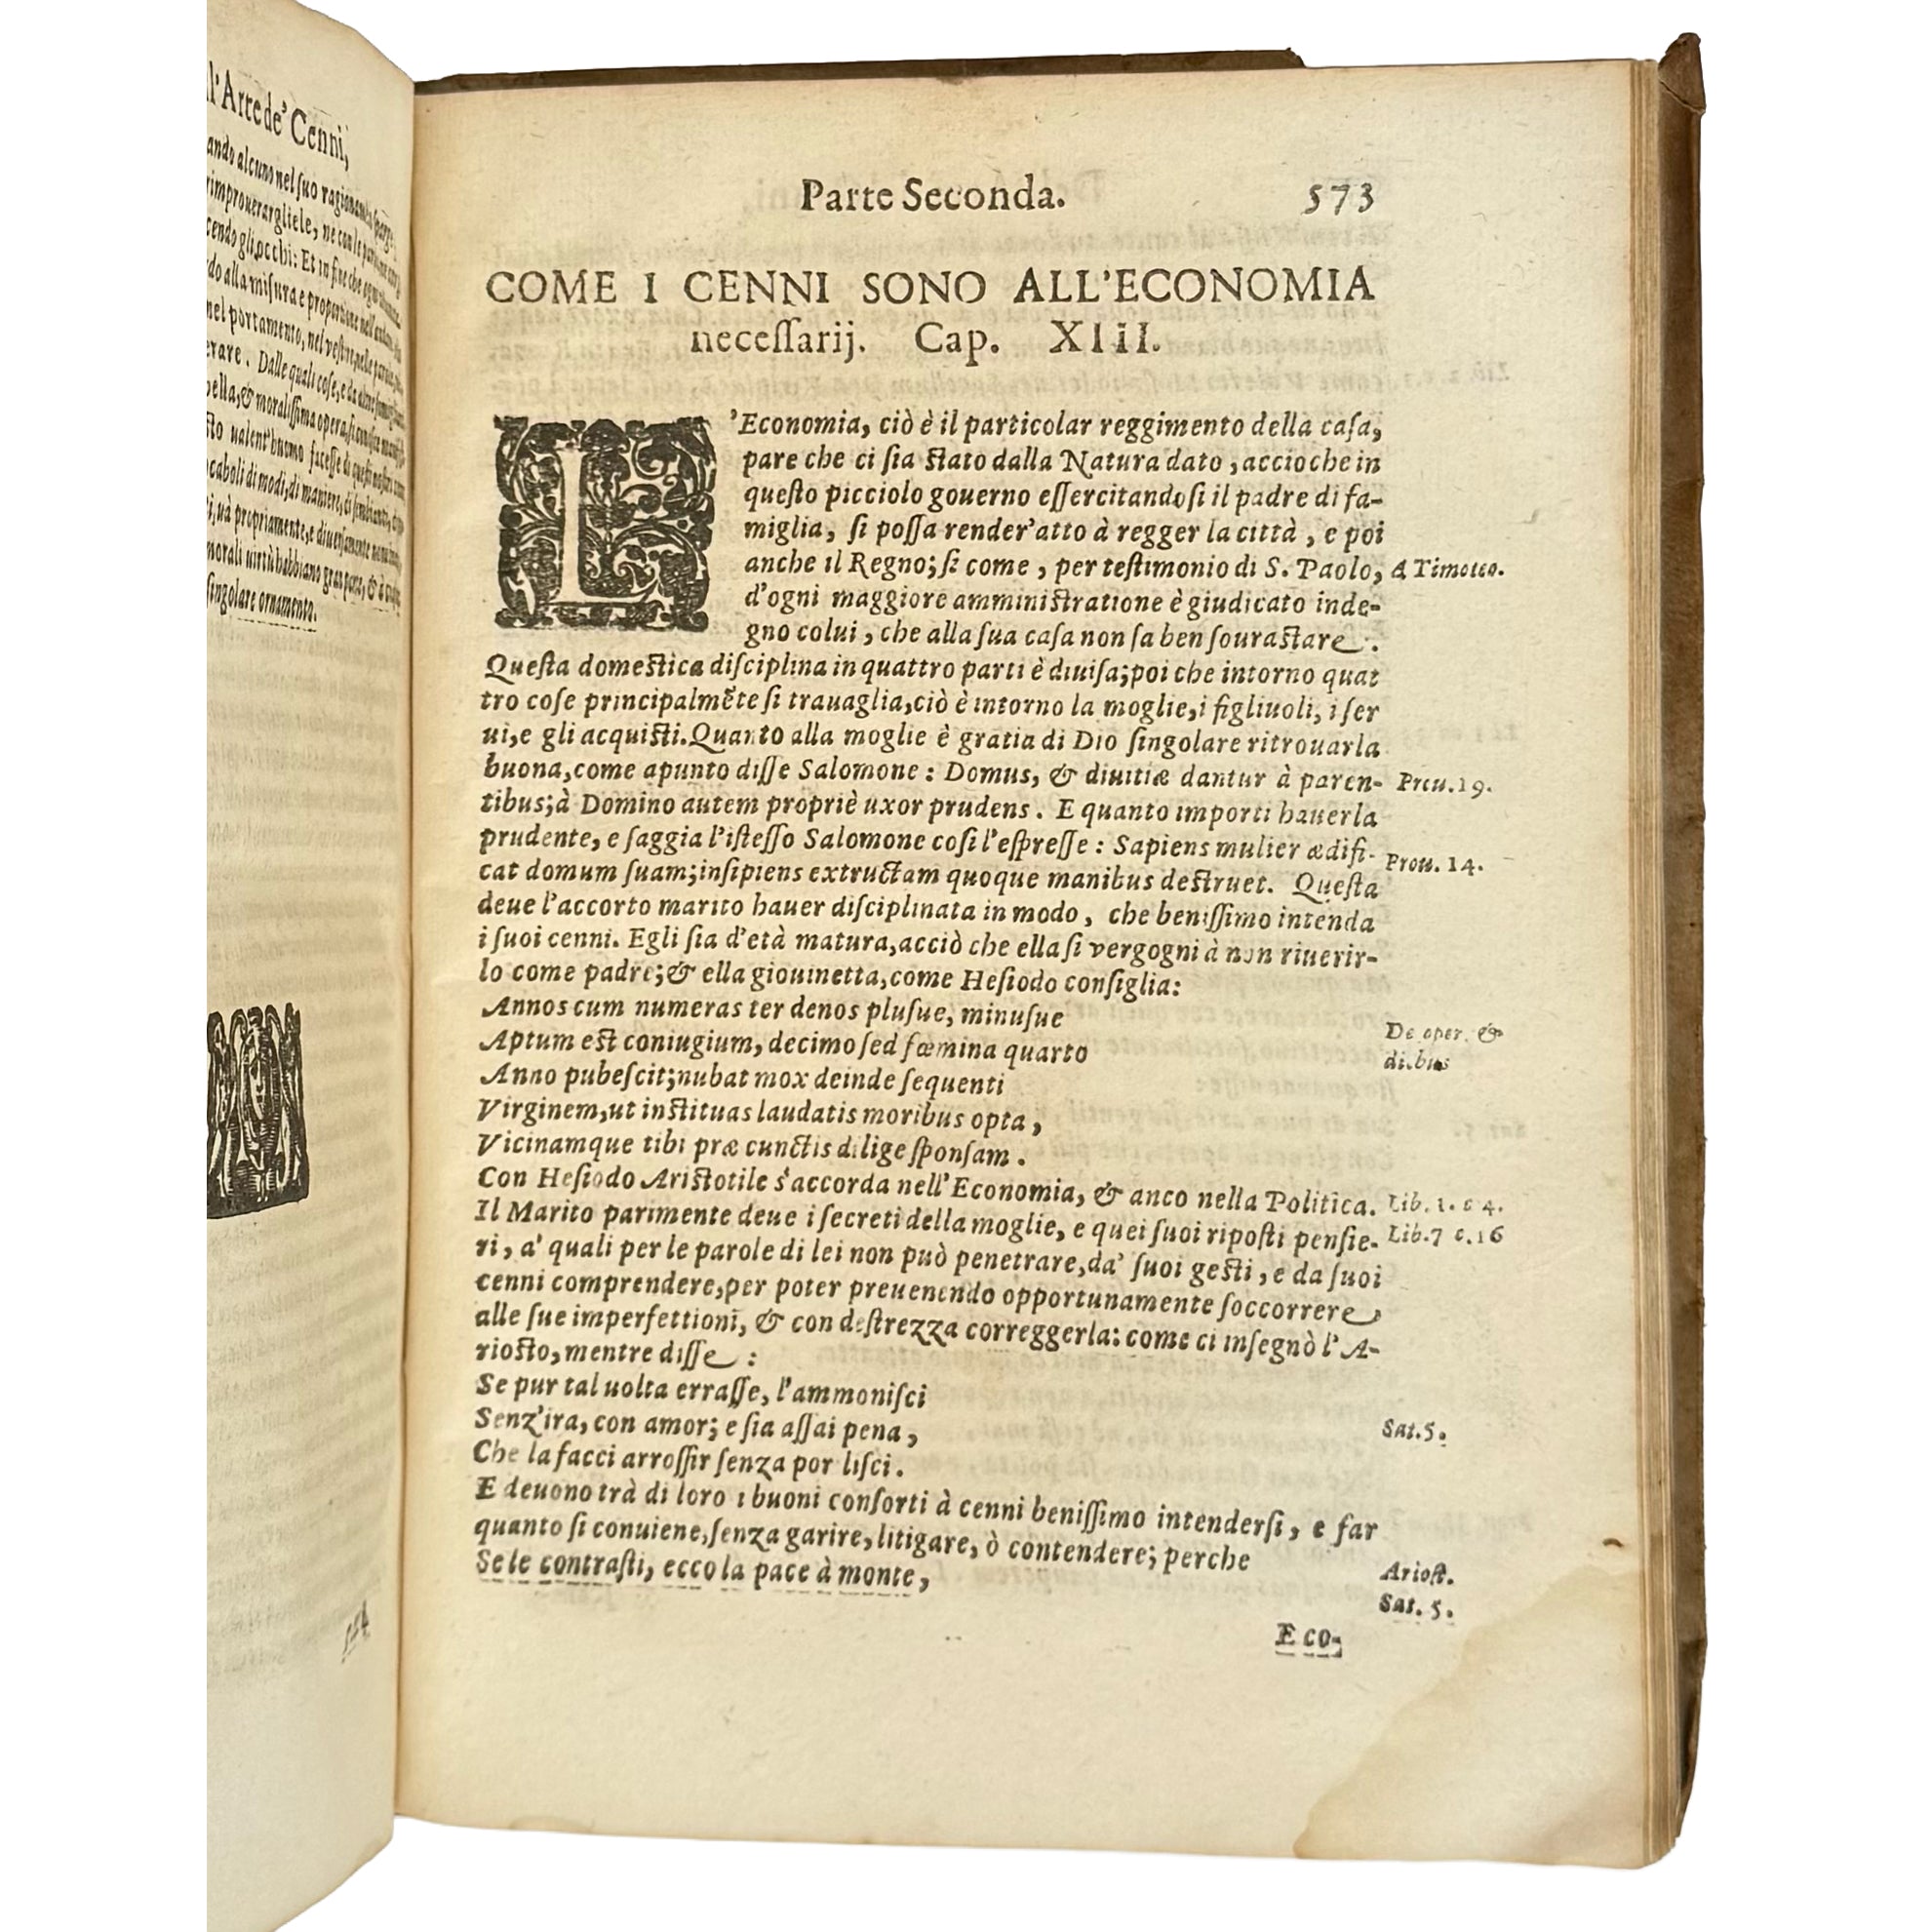 l'Arte de' Cenni,
ando alcuno nel suo ragionamento
rimprouerargliele, ne con le
cendo gli occhi: Et in fine che
do alla misura e proportione nell'andare,
nel portamento, nel vestire, nelle parole,
erare. Dalle quali cose, e da altre
bella, & moralissima opera,
sto ualent'huomo facesse di questi nostri cenni
caboli di modi, di maniere, di sembianti,
i, uà propriamente, e diuersamente
morali uirtù habbiano gran parte, &
singolare ornamento.
Parte Seconda. 573
COME I CENNI SONO ALL'ECONOMIA
necessarij. Cap. XIII.
L'Economia, ciò è il particolar reggimento della casa,
pare che ci sia stato dalla Natura dato, accioche in
questo picciolo gouerno essercitandosi il padre di fa-
miglia, si possa render'atto à regger la città, e poi
anche il Regno; si come, per testimonio di S. Paolo, A Timoteo.
d'ogni maggiore amministratione è giudicato inde-
gno colui, che alla sua casa non sa ben sourastare.
Questa domestica disciplina in quattro parti è diuisa; poi che intorno quat
tro cose principalmẽte si trauaglia, ciò è intorno la moglie, i figliuoli, i ser
ui, e gli acquisti. Quanto alla moglie è gratia di Dio singolare ritrouarla
buona, come apunto disse Salomone: Domus, & diuitiæ dantur à paren- Prou. 19.
tibus; à Domino autem propriè uxor prudens. E quanto importi hauerla
prudente, e saggia l'istesso Salomone cosi l'espresse: Sapiens mulier ædifi- Prou. 14.
cat domum suam; insipiens extructam quoque manibus destruet. Questa
deue l'accorto marito hauer disciplinata in modo, che benissimo intenda
i suoi cenni. Egli sia d'età matura, acciò che ella si vergogni à non riuerir-
lo come padre; & ella giouinetta, come Hesiodo consiglia:
Annos cum numeras ter denos plusue, minusue
Aptum est coniugium, decimo sed fœmina quarto De oper. &
Anno pubescit; nubat mox deinde sequenti diebus
Virginem, ut instituas laudatis moribus opta,
Vicinamque tibi præ cunctis dilige sponsam.
Con Hesiodo Aristotile s'accorda nell'Economia, & anco nella Politica. Lib. 1. c 4.
Il Marito parimente deue i secreti della moglie, e quei suoi riposti pensie- Lib. 7 c. 16
ri, a' quali per le parole di lei non può penetrare, da' suoi gesti, e da suoi
cenni comprendere, per poter preuenendo opportunamente soccorrere
alle sue imperfettioni, & con destrezza correggerla: come ci insegnò l'A-
riosto, mentre disse:
Se pur tal uolta errasse, l'ammonisci
Senz'ira, con amor; e sia assai pena, Sat. 5.
Che la facci arrossir senza por lisci.
E deuono trà di loro i buoni consorti à cenni benissimo intendersi, e far
quanto si conuiene, senza garire, litigare, ò contendere; perche
Se le contrasti, ecco la pace à monte, Ariost.
Sat. 5.
E co-